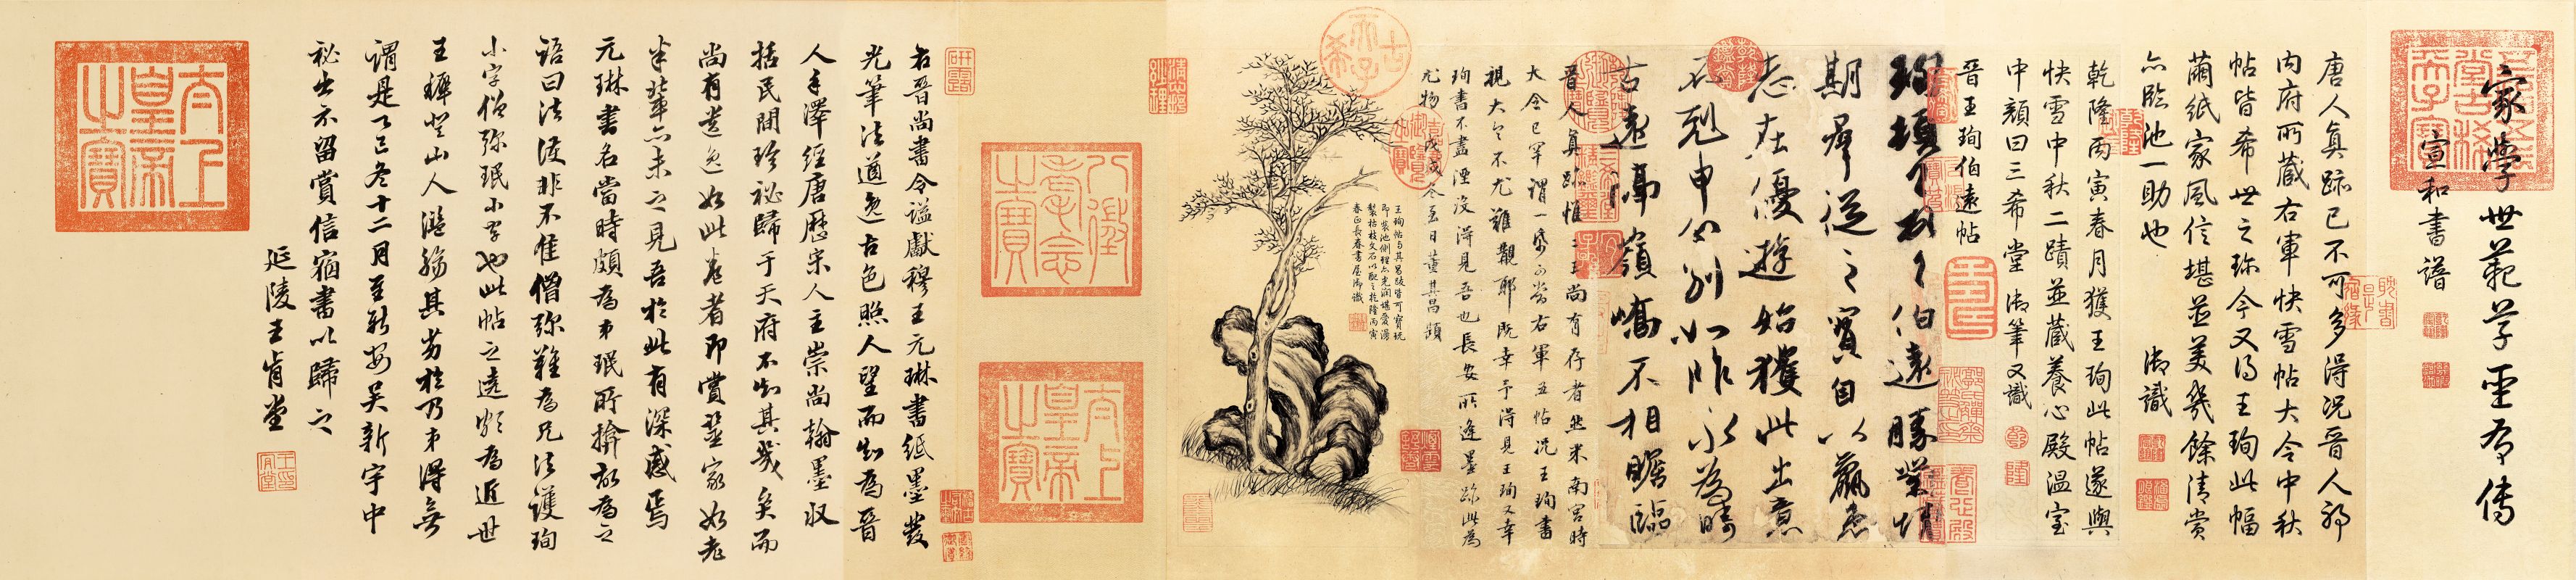 家學世範草聖有傳
宣和書譜
唐人真跡已不可多得況晉人耶
內府所藏右軍快雪帖大令中秋
帖皆希世之珍今又得王珣此幅
繭紙家風信堪並美幾餘清賞
亦臨池一助也 御識
乾隆丙寅春月獲王珣此帖遂與
快雪中秋二蹟並藏養心殿溫室
中顏曰三希堂御筆又識
晉王珣伯遠帖
珣頓首頓首伯遠勝業情
期群從之寶自以羸患
志在優遊始獲此出意
不剋申分別如昨永為疇
古遠隔嶺嶠不相瞻臨
晉人真跡惟二王尚有存者然米南宮時
大令已罕謂一紙可當右軍五帖況王珣書
視大令不尤難覯耶既幸予得見王珣又幸
珣書不盡湮沒得見吾也長安所逢墨跡此為
尤物戊戌冬至日董其昌題
王珣帖與其昌跋皆可寶玩
即裝池側理亦光潤堪愛漫
製枯枝文石以配之乾隆丙寅
春正長春書屋御識
古希天子
八徵耄念之寶
太上皇帝之寶
右晉尚書令謚獻穆王元琳書紙墨發
光筆法遒逸古色照人望而知為晉
人手澤經唐歷宋人主崇尚翰墨收
括民間珍秘歸于天府不知其幾矣而
尚有遺逸如此卷者即賞鑒家如老
米輩亦未之見吾於此有深感焉
元琳書名當時頗為弟珉所揜故為之
語曰法護非不佳僧彌難為兄法護珣
小字僧彌珉小字也此帖之遠為近世
王穉登山人濫觴其劣於乃弟得無
謂是冬十二月至新安吳新宇中
祕出示留賞信宿書以歸之
延陵王肯堂
王肯堂
太上皇帝之寶